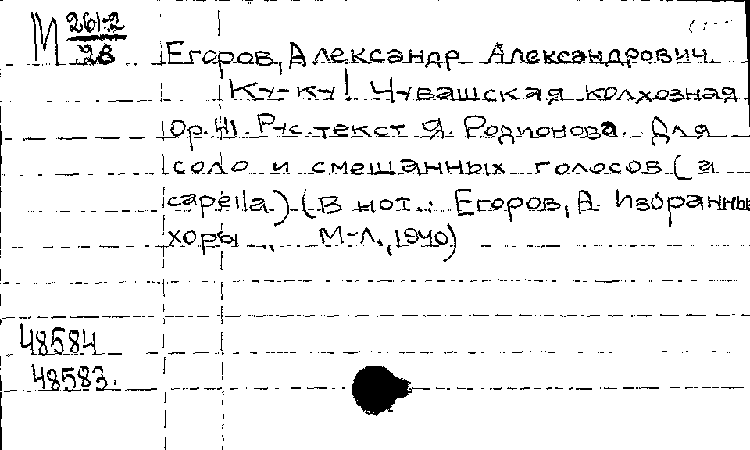 М 261-2
28
Егоров, Александр Александрович
Ку-ку! Чувашская колхозная
Ор. 41. Рус. текст Я. Родионова. Для
соло и смешанных голосов (a
capella). (В нот.: Егоров, А. Избранны
хоры М-Л., 1940)
48584
48583.